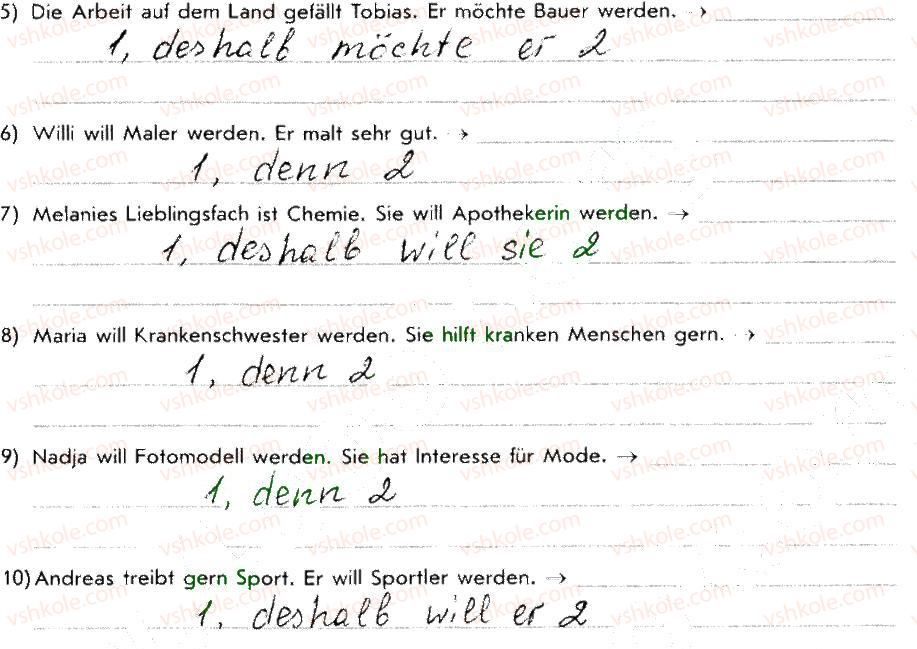 5) Die Arbeit auf dem Land gefällt Tobias. Er möchte Bauer werden. →
1, deshalb möchte er 2
6) Willi will Maler werden. Er malt sehr gut. →
1, denn 2
7) Melanies Lieblingsfach ist Chemie. Sie will Apothekerin werden. →
1, deshalb will sie 2
8) Maria will Krankenschwester werden. Sie hilft kranken Menschen gern. →
1, denn 2
9) Nadja will Fotomodell werden. Sie hat Interesse für Mode. →
1, denn 2
10) Andreas treibt gern Sport. Er will Sportler werden. →
1, deshalb will er 2
vshkole.com